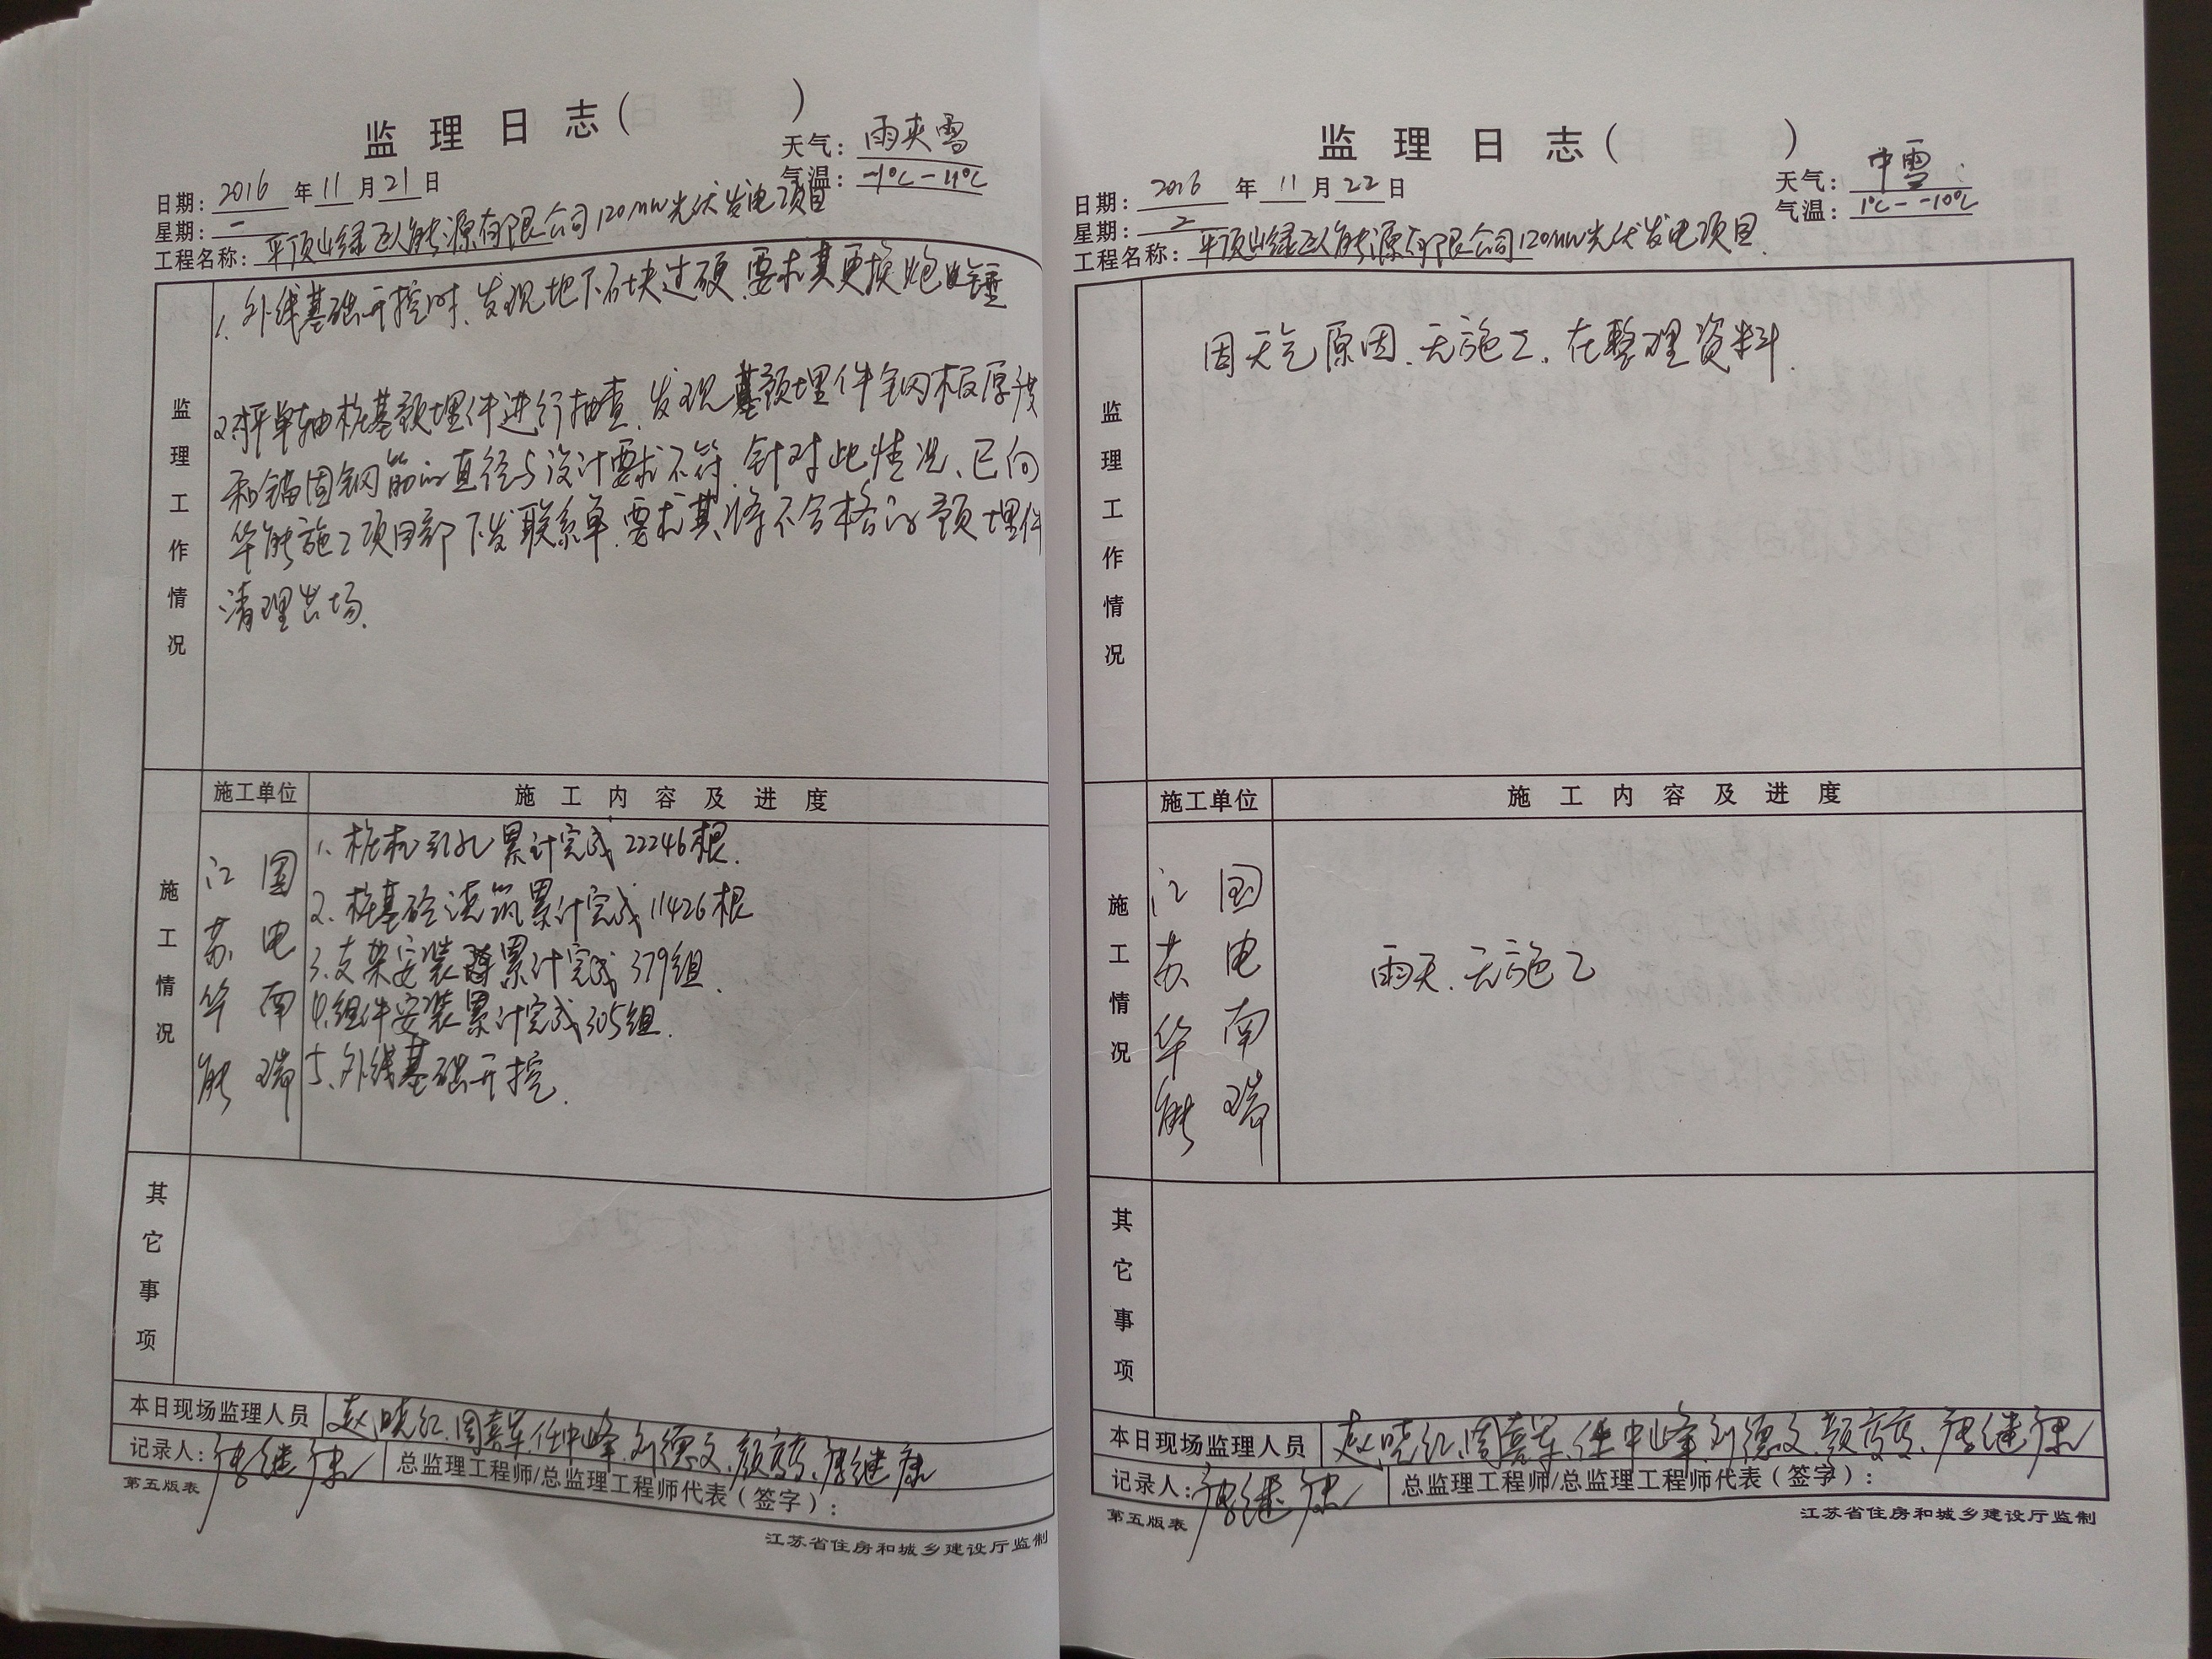 监理日志(　　)
天气：雨夹雪
日期：2016年11月21日
气温：-1℃-11℃
星期：一
工程名称：平顶山绿巨人能源有限公司120MW光伏发电项目
监理工作情况
1、外线基础开挖时、发现地下石块过硬、要求其更换炮锤
2、对平单轴桩基预埋件进行抽查、发现预埋件钢板厚度
和锚固钢筋的直径与设计要求不符、针对此情况、已向
华能施工项目部下发联系单、要求其将不合格的预埋件
清理出场.
施工情况
施工单位　施工内容及进度
江苏华能
国电南瑞
1、桩机引孔累计完成22246根.
2、桩基砼浇筑累计完成11426根
3、支架安装累计完成379组.
4、组件安装累计完成305组.
5、外线基础开挖.
其它事项
本日现场监理人员　赵晓红、周嘉军、任中峰、刘德文、颜高亮、唐继康
记录人：唐继康　总监理工程师/总监理工程师代表（签字）：
第五版表
江苏省住房和城乡建设厅监制
监理日志(　　)
天气：中雪
日期：2016年11月22日
气温：1℃--10℃
星期：二
工程名称：平顶山绿巨人能源有限公司120MW光伏发电项目.
监理工作情况
因天气原因、无施工、在整理资料.
施工情况
施工单位　施工内容及进度
江苏华能
国电南瑞
雨天、无施工
其它事项
本日现场监理人员　赵晓红、周嘉军、任中峰、刘德文、颜高亮、唐继康
记录人：唐继康　总监理工程师/总监理工程师代表（签字）：
第五版表
江苏省住房和城乡建设厅监制